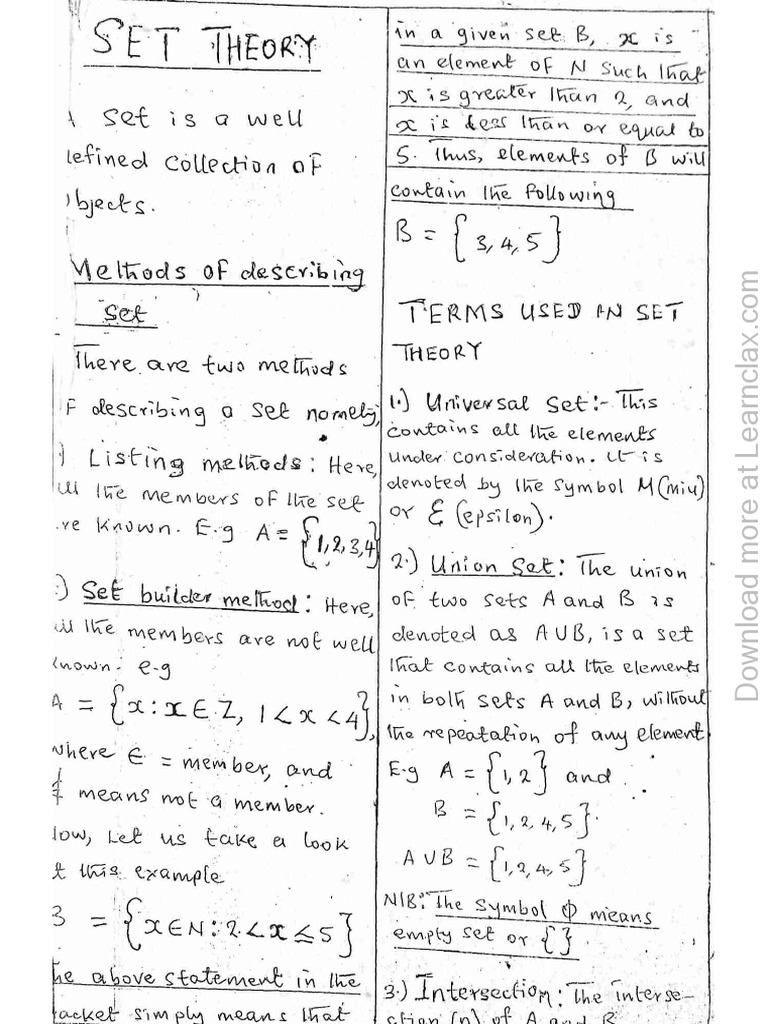 SET THEORY
A set is a well
defined collection of
objects.
Methods of describing
set
There are two methods
of describing a set namely,
) Listing methods: Here,
all the members of the set
are known. E.g A = {1,2,3,4}
:) Set builder method: Here,
all the members are not well
known. e-g
A = {x: x ∈ Z, 1 < x < 4},
where ∈ = member, and
∉ means not a member.
Now, Let us take a look
at this example
B = {x ∈ N: 2 < x ≤ 5}
The above statement in the
bracket simply means that
in a given set B, x is
an element of N such that
x is greater than 2, and
x is less than or equal to
5. Thus, elements of B will
contain the following
B = {3,4,5}
TERMS USED IN SET
THEORY
1.) Universal Set:- This
contains all the elements
under consideration. It is
denoted by the symbol M(miu)
or Ɛ (epsilon).
2.) Union Set: The union
of two sets A and B is
denoted as A∪B, is a set
that contains all the elements
in both sets A and B, without
the repeatation of any element
E.g A = {1,2} and
B = {1,2,4,5}.
A∪B = {1,2,4,5}
N/B: The symbol ϕ means
empty set or { }.
3.) Intersection: The interse-
ction (n) of A and B
Download more at Learnclax.com